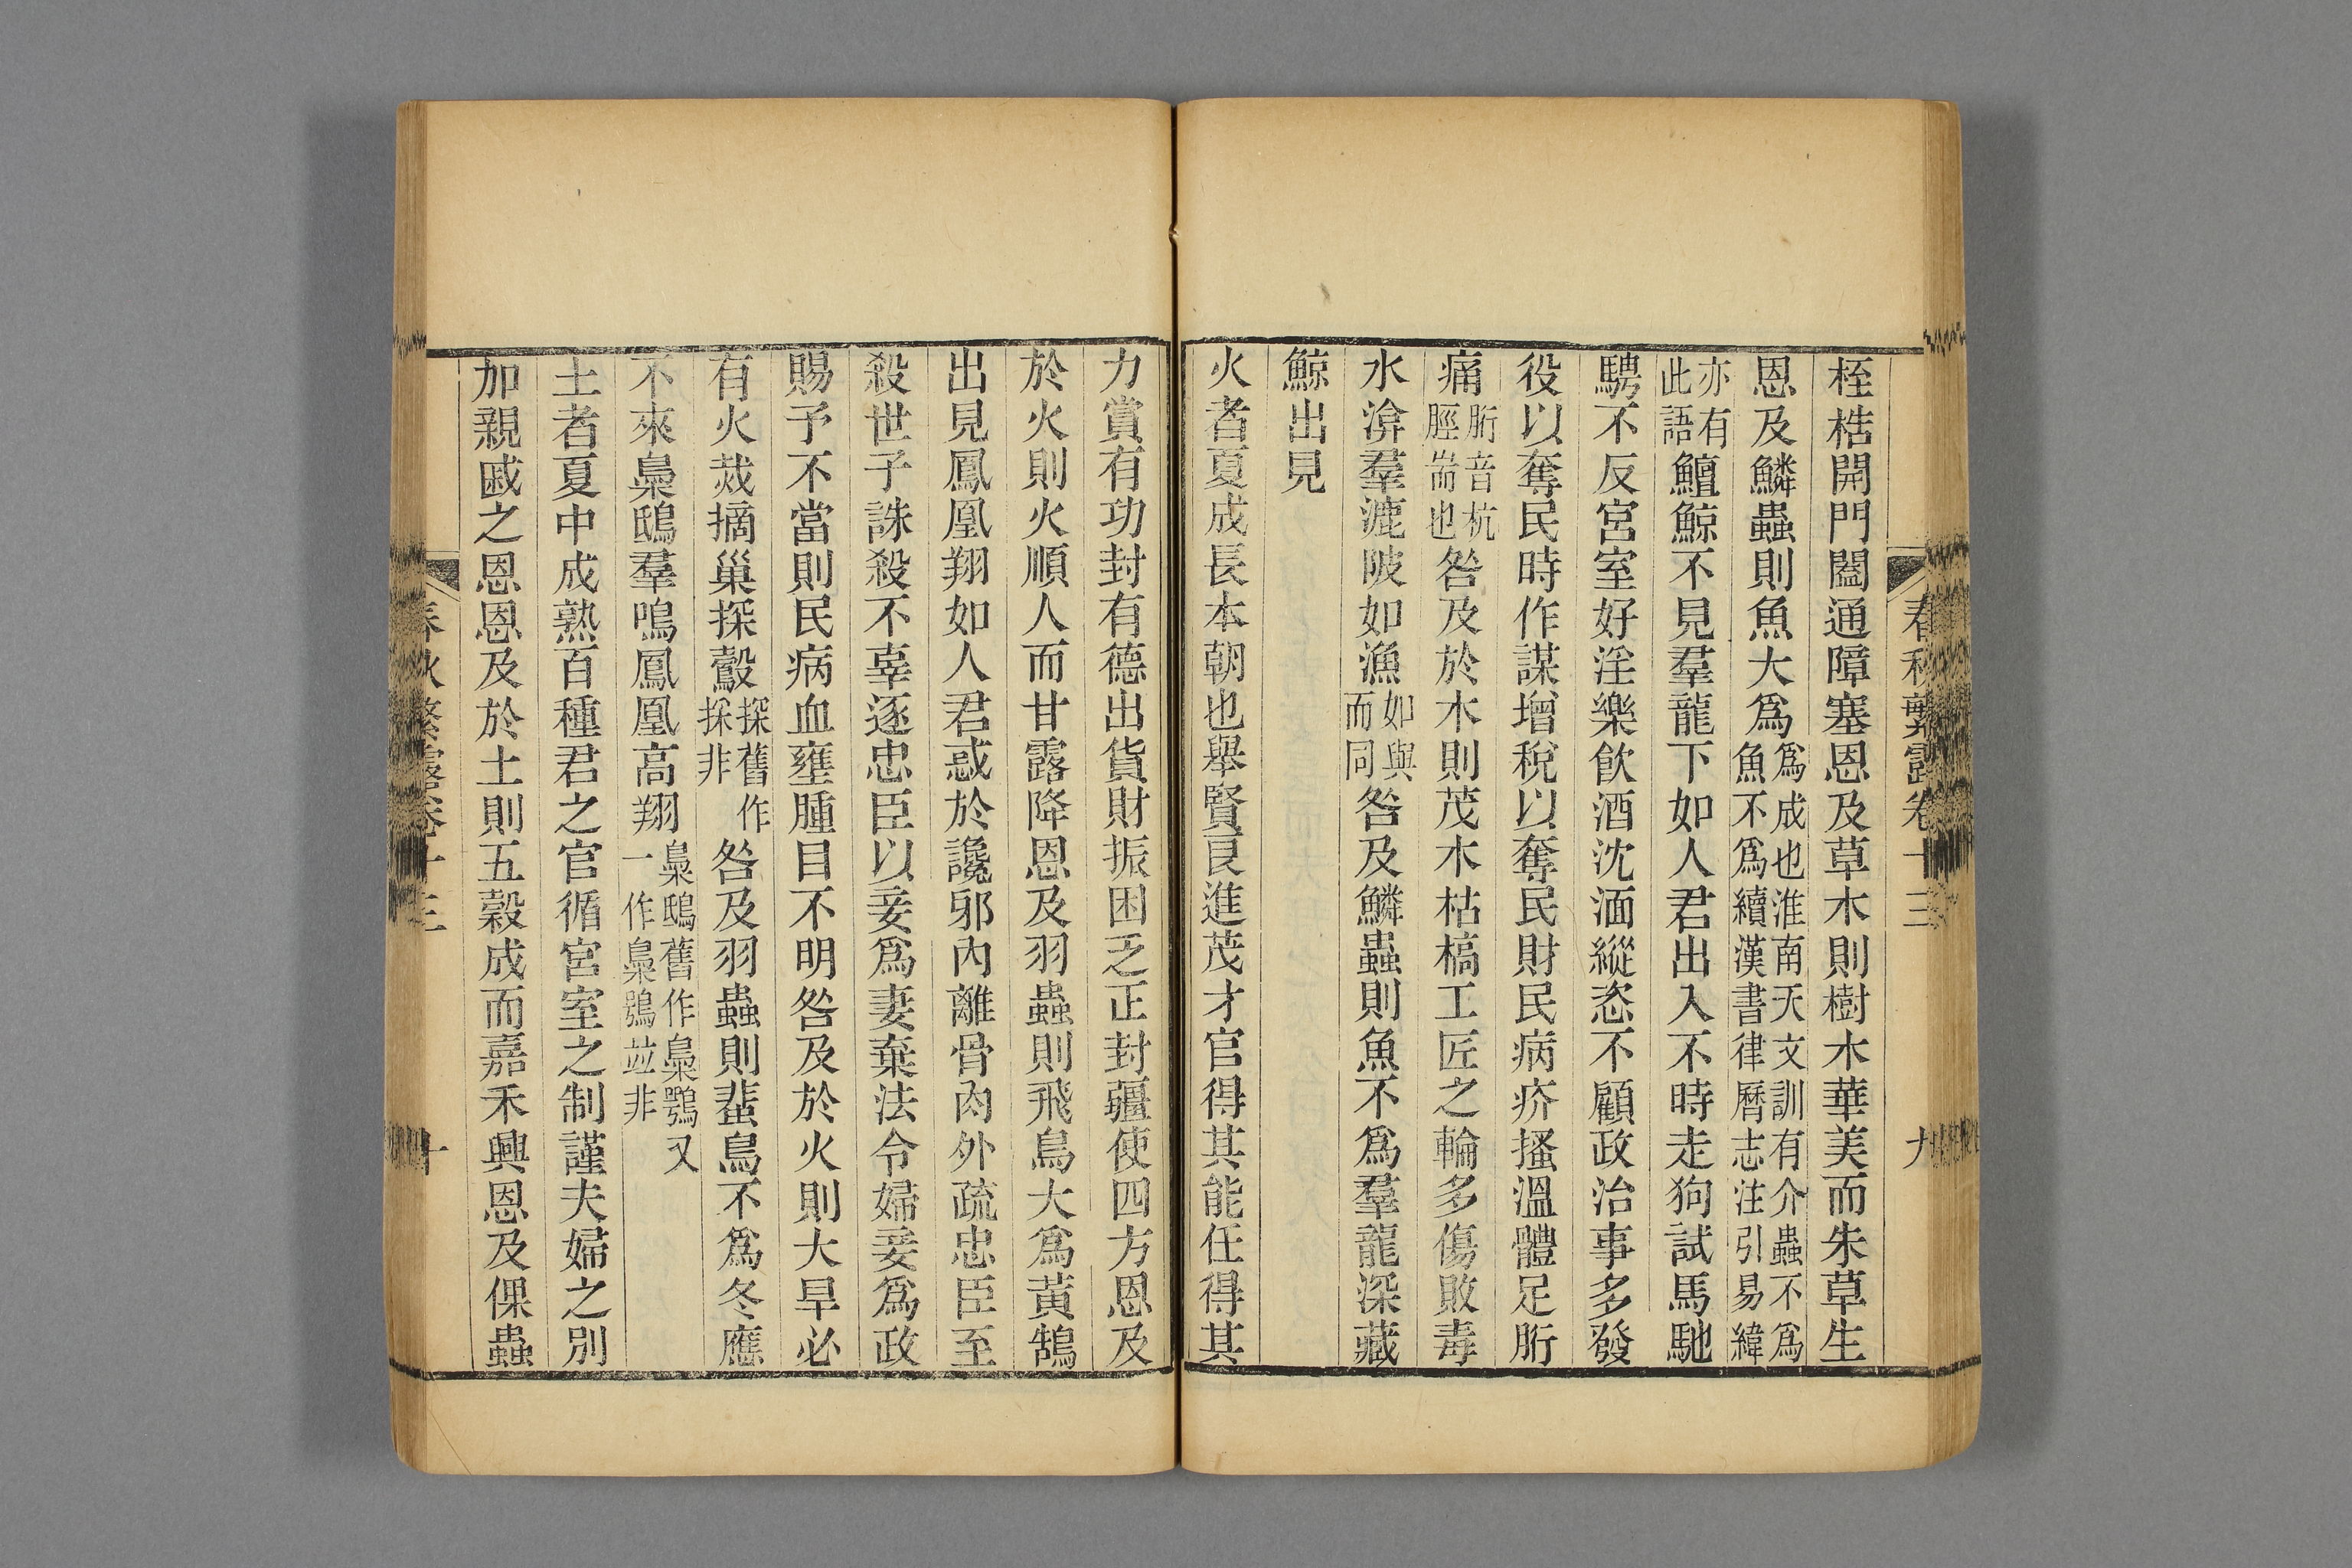 春秋繁露卷十三 九
桎梏開門闔通障塞恩及草木則樹木華美而朱草生
恩及鱗蟲則魚大爲爲成也淮南天文訓有介蟲不爲魚不爲續漢書律曆志注引易緯
亦有此語鱣鯨不見羣龍下如人君出入不時走狗試馬馳
騁不反宮室好淫樂飮酒沈湎縱恣不顧政治事多發
役以奪民時作謀增稅以奪民財民病疥搔溫體足胻
痛胻音杭脛耑也咎及於木則茂木枯槁工匠之輪多傷敗毒
水渰羣漉陂如漁如與而同咎及鱗蟲則魚不爲羣龍深藏
鯨出見
火者夏成長本朝也舉賢良進茂才官得其能任得其
力賞有功封有德出貨財振困乏正封疆使四方恩及
於火則火順人而甘露降恩及羽蟲則飛鳥大爲黃鵠
出見鳳凰翔如人君惑於讒邪內離骨肉外疏忠臣至
殺世子誅殺不辜逐忠臣以妾爲妻棄法令婦妾爲政
賜予不當則民病血壅腫目不明咎及於火則大旱必
有火烖摘巢探鷇探舊作採非咎及羽蟲則蜚鳥不爲冬應
不來梟鴟羣鳴鳳凰高翔梟鴟舊作梟鶚又一作梟鴞竝非
土者夏中成熟百種君之官循宮室之制謹夫婦之別
加親戚之恩恩及於土則五穀成而嘉禾興恩及倮蟲
春秋繁露卷十三 十